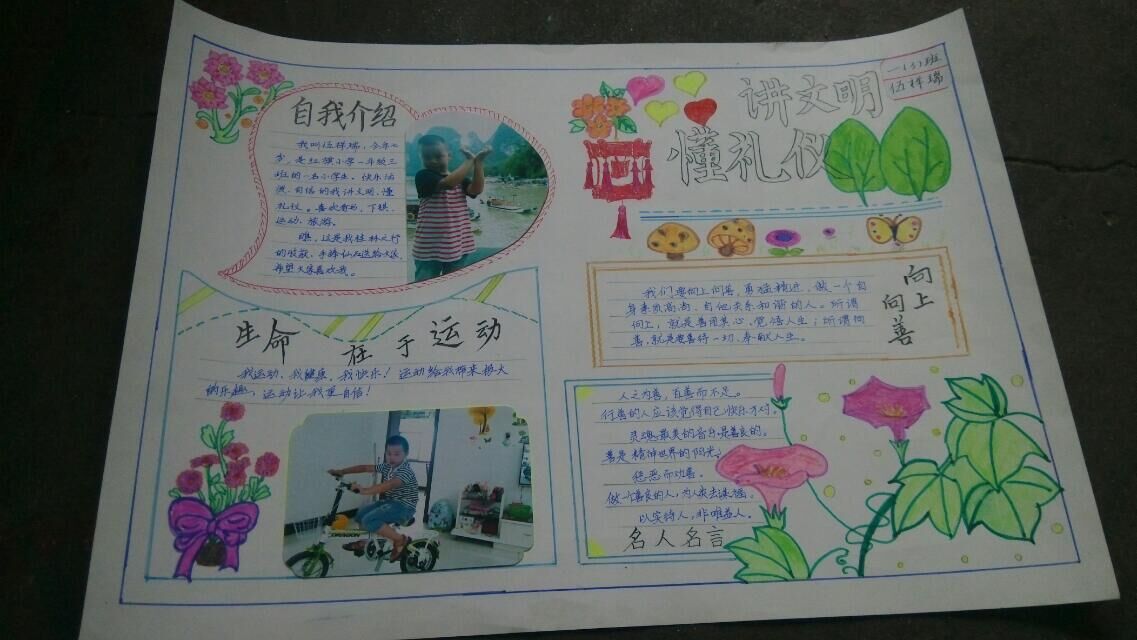 自我介绍
我叫伍梓瑞，今年七
岁，是红旗小学一年级三
班的一名小学生。快乐活
泼、自信的我讲文明、懂
礼仪。喜欢看书、下棋、
运动、旅游。
瞧，这是我桂林之行
的收获，手捧仙
希望大家喜欢我。
生命在于运动
我运动、我健康、我快乐！运动给我带来极大
的乐趣，运动让我更自信！
一(3)班
伍梓瑞
讲文明
懂礼仪
向上
向善
我们要向上向善，勇猛精进，做一个自
身素质高尚、与他关系和谐的人。所谓
向上，就是善用其心、觉悟人生；所谓向
善，就是要善待一切、奉献人生。
人之为善，百善而不足。
行善的人应该觉得自己快乐才对。
灵魂最美的音乐是善良的。
善是精神世界的阳光。
惩恶而劝善。
做一个善良的人，为人类去谋福。
以实待人，非唯益人。
名人名言